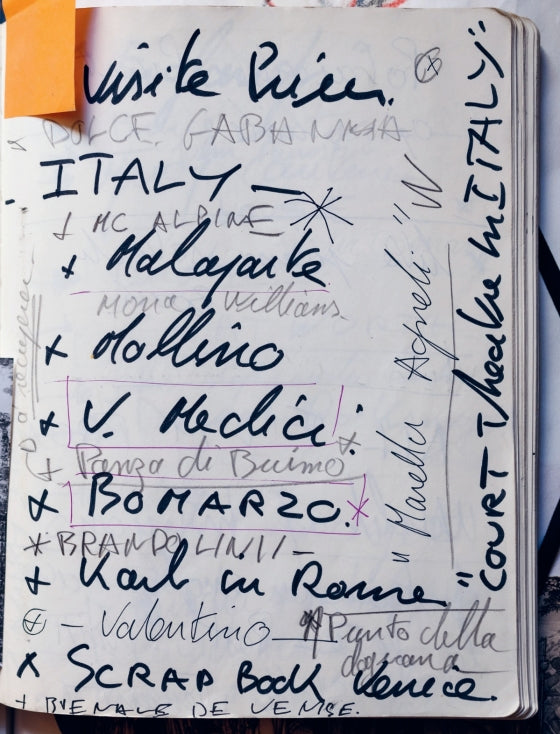 Visite
DOLCE. GABANNA
ITALY —
MC ALPINE
+ Malaparte
Mona Williams.
+ Mollino
+ V. Medici
+ Panza di Buimo
+ BOMARZO.
* BRANDOLINII -
+ Karl in Rome
- Valentino
Punto della
dogana
x SCRAP Book Venice.
+ BIENALE DE VENISE.
"Marella Agneli"
"COURT Theatre in ITALY"